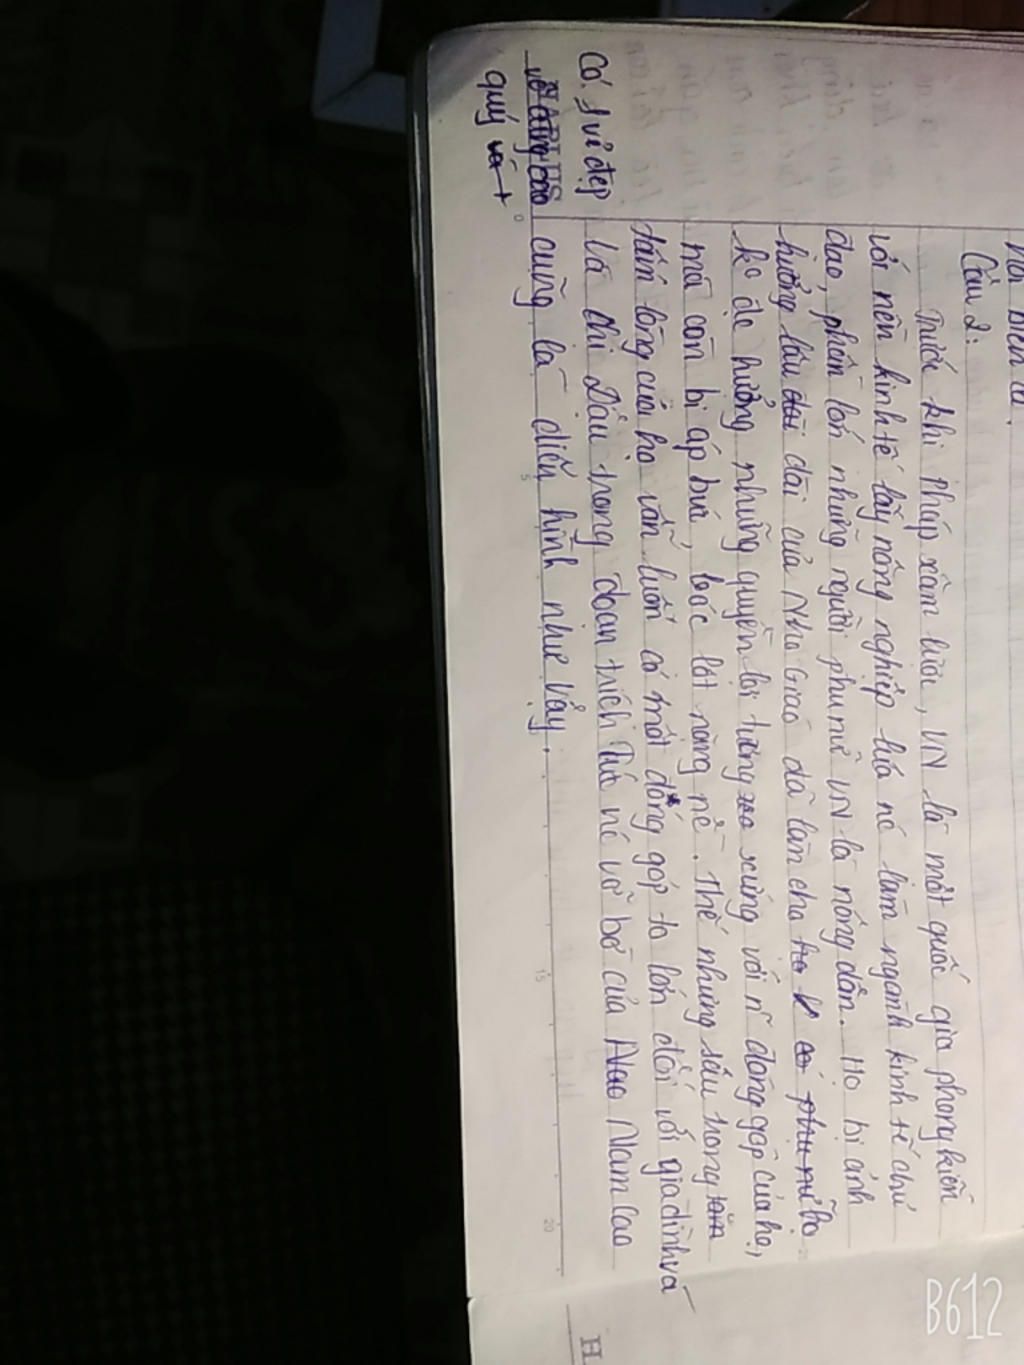 Câu 2:
Trước khi Pháp xâm lược, VN là một quốc gia phong kiến
với nền kinh tế lấy nông nghiệp lúa nc làm ngành kinh tế chủ
đạo, phần lớn những người phụ nữ VN là nông dân. Họ bị ảnh
hưởng lâu dài của Nho Giáo đã làm cho họ
ko đc hưởng những quyền lợi tương xứng với n~ đóng góp của họ,
mà còn bị áp bức, bóc lột nặng nề. Thế nhưng sâu trong
tấm lòng của họ vẫn luôn có một đóng góp to lớn đối với gia đình và
Có 1 vẻ đẹp
là chị Dậu trong đoạn trích Tức nc vỡ bờ của Nam Cao
cũng là điển hình như vậy.
quý
5
15
20
H
B612